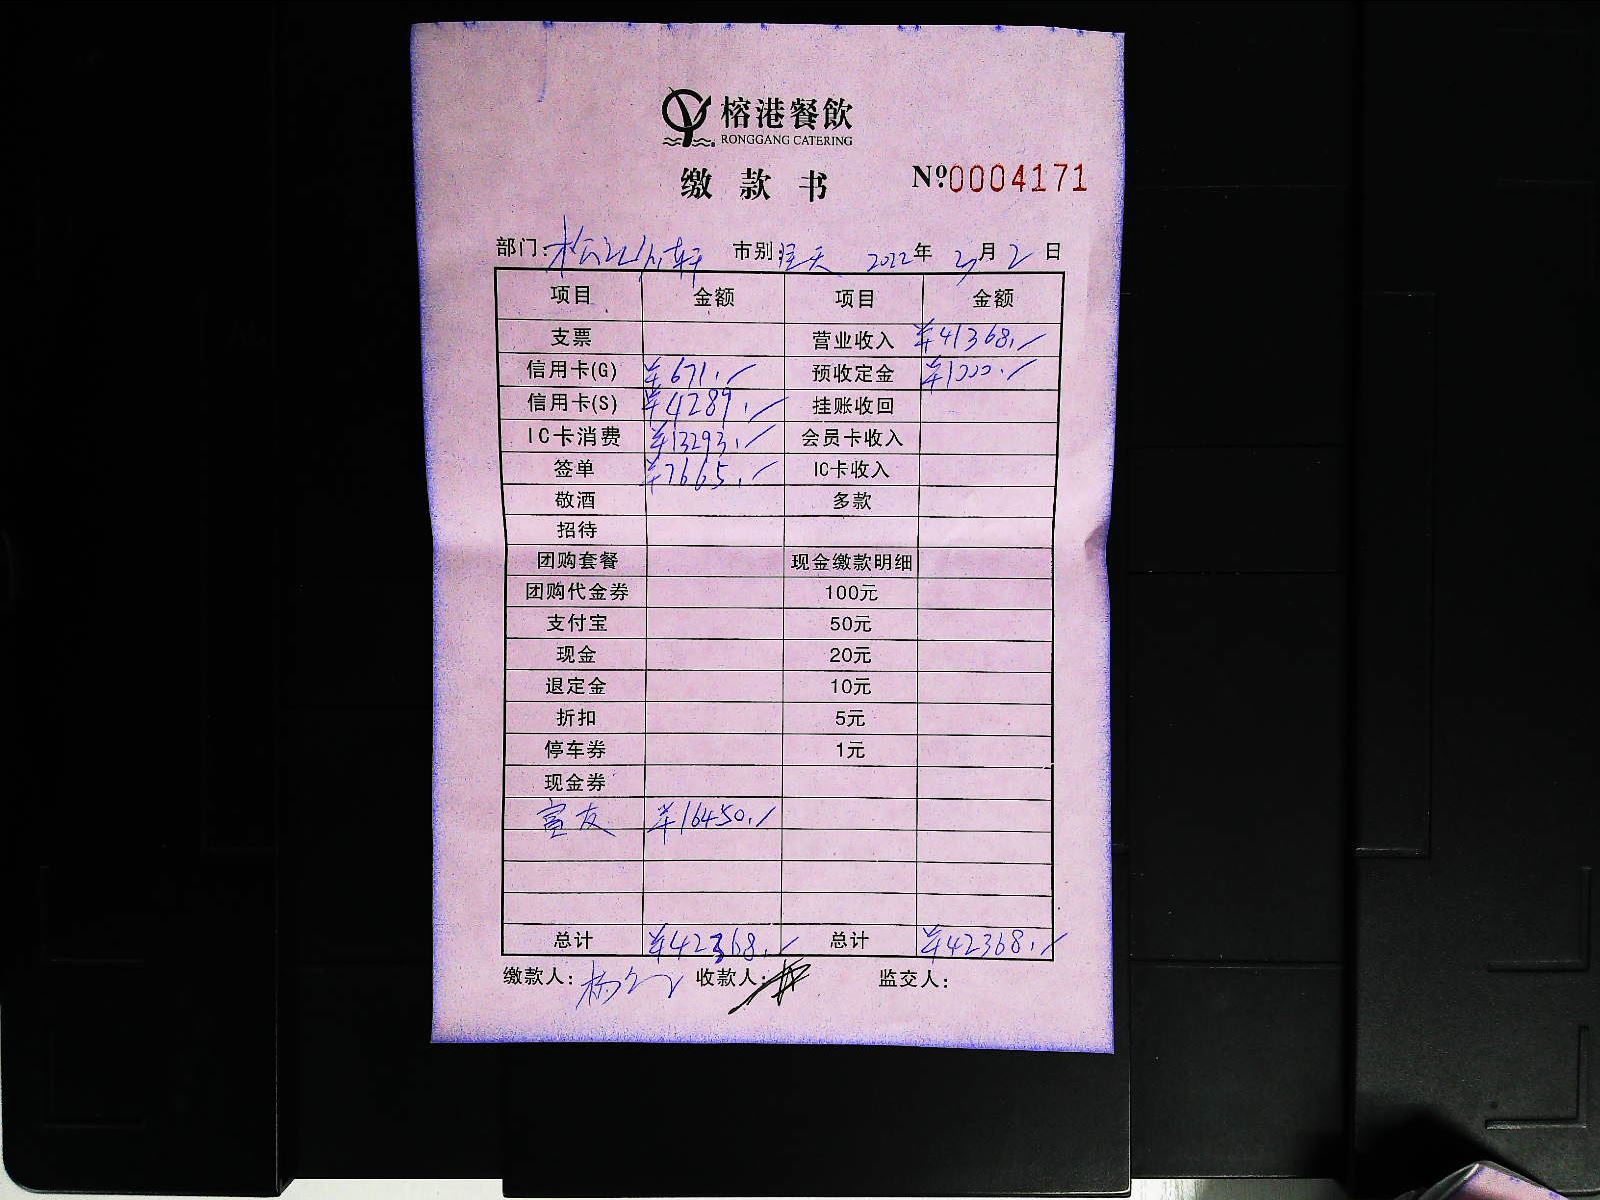 榕港餐飲
RONGGANG CATERING
缴款书 Nº0004171
部门: 市别 全天 2022年 3月 2日
项目 金额 项目 金额
支票 营业收入 ¥41368.
信用卡(G) ¥671. 预收定金 ¥1000.
信用卡(S) ¥4289. 挂账收回
IC卡消费 ¥13293. 会员卡收入
签单 ¥7665. IC卡收入
敬酒 多款
招待
团购套餐 现金缴款明细
团购代金券 100元
支付宝 50元
现金 20元
退定金 10元
折扣 5元
停车券 1元
现金券
富友 ¥16450.
总计 ¥42368. 总计 ¥42368.
缴款人: 收款人: 监交人: